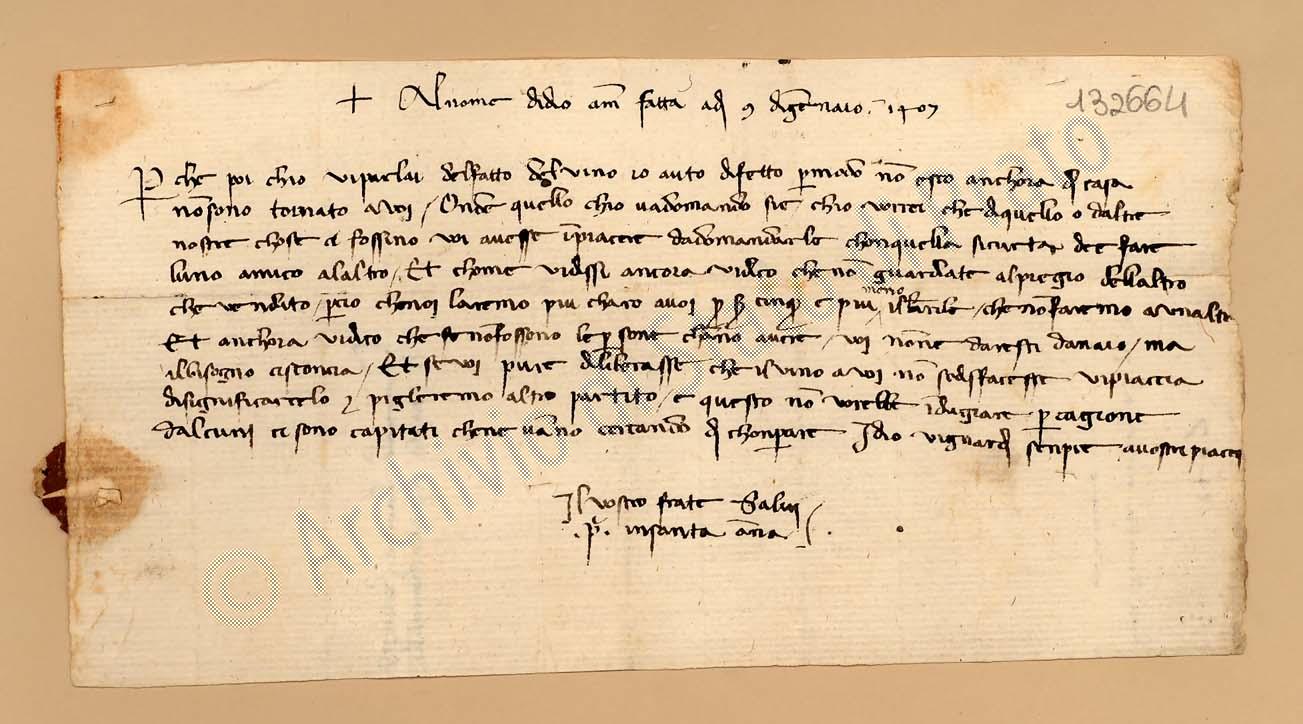 + Al nome di dio am̅ fatta adi 9 di gen̅naio 1407
132664
P che poi chio vi parlai del fatto del vino io auto difetto p modo no̅ esco anchora di casa
no̅ sono tornato a voi / Onde quello chio va domando sie chio vorrei che di quello o daltre
nostre chose ci fossino voi avesse i̅ piacere da domandarle chon quella sicurta dee fare
luno amico alaltro / Et chome vi dissi ancora vi dico che no̅ guardiate al pregio dellaltro
che venduto / p cio che noi laremo piu charo a voi p s cinque e piu meno il barile / che no̅ faremo a unaltro
Et anchora vi dico che se no̅ fossono le psone cha̅no avere / voi none daresti danaio / ma
il bisogno ci sconcia / Et se voi pure diliberasse che il vino a voi no̅ sodisfacesse vi piaccia
di significarcelo e piglieremo altro partito / e questo no̅ vorebbe i̅dugiare p cagione
dalcuni ci sono capitati che ne va̅no cercando di chonperare Idio vi guardi senpre a vostri piaceri
Il vostro frate Salvi
.p. in santa a̅na
© Archivio di Stato di Prato